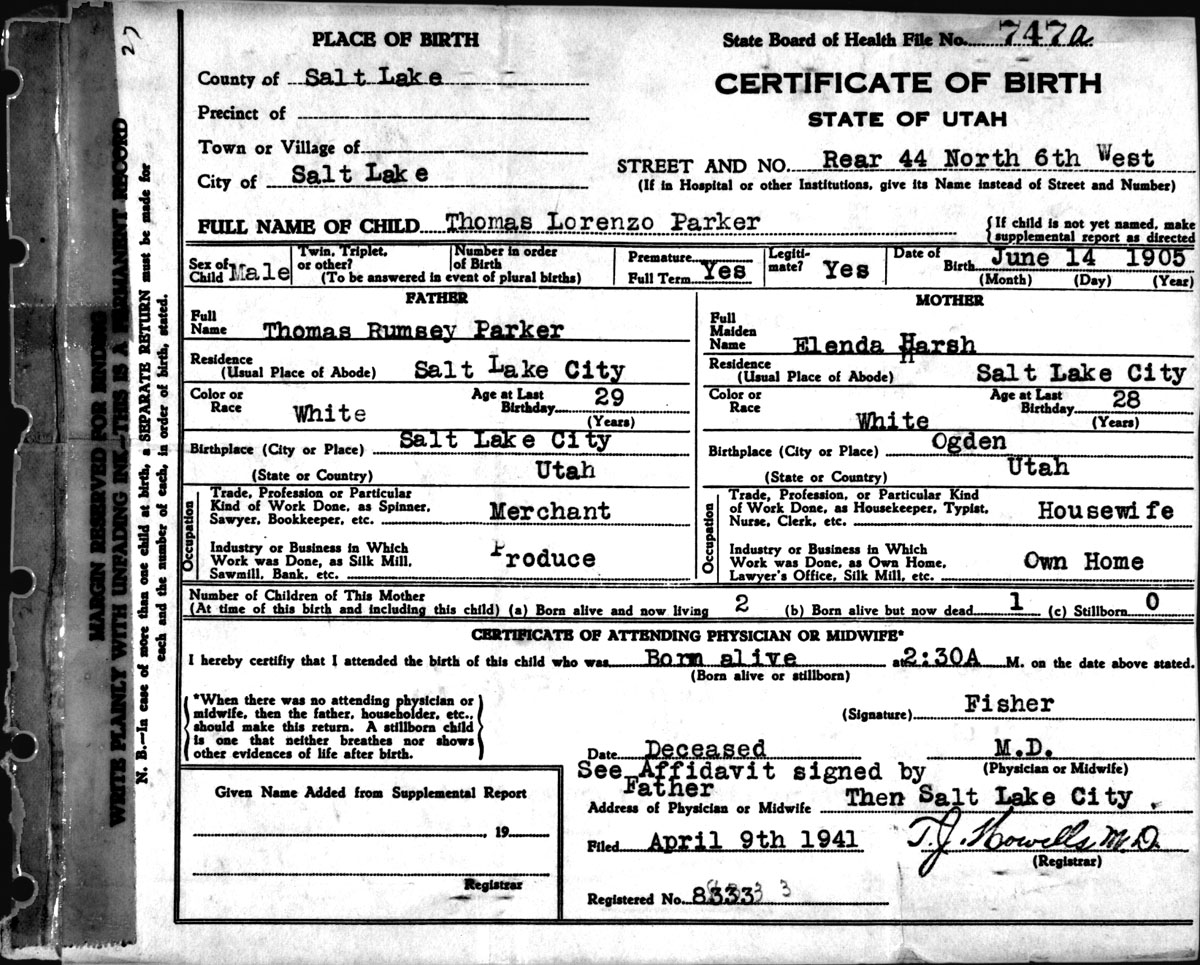 27
PLACE OF BIRTH
State Board of Health File No. 747a
County of Salt Lake
CERTIFICATE OF BIRTH
Precinct of
STATE OF UTAH
Town or Village of
STREET AND NO. Rear 44 North 6th West
City of Salt Lake
(If in Hospital or other Institutions, give its Name instead of Street and Number)
FULL NAME OF CHILD Thomas Lorenzo Parker
{If child is not yet named, make
supplemental report as directed
Sex of Child Male
Twin, Triplet, or other?
Number in order of Birth
(To be answered in event of plural births)
Premature
Full Term Yes
Legiti-mate? Yes
Date of Birth June 14 1905
(Month) (Day) (Year)
FATHER
Full Name Thomas Rumsey Parker
Residence (Usual Place of Abode) Salt Lake City
Color or Race White
Age at Last Birthday 29 (Years)
Birthplace (City or Place) Salt Lake City
(State or Country) Utah
Occupation
Trade, Profession or Particular
Kind of Work Done, as Spinner,
Sawyer, Bookkeeper, etc. Merchant
Industry or Business in Which
Work was Done, as Silk Mill,
Sawmill, Bank, etc. Produce
MOTHER
Full Maiden Name Elenda Harsh
Residence (Usual Place of Abode) Salt Lake City
Color or Race White
Age at Last Birthday 28 (Years)
Birthplace (City or Place) Ogden
(State or Country) Utah
Occupation
Trade, Profession, or Particular Kind
of Work Done, as Housekeeper, Typist,
Nurse, Clerk, etc. Housewife
Industry or Business in Which
Work was Done, as Own Home,
Lawyer's Office, Silk Mill, etc. Own Home
Number of Children of This Mother
(At time of this birth and including this child) (a) Born alive and now living 2 (b) Born alive but now dead 1 (c) Stillborn 0
CERTIFICATE OF ATTENDING PHYSICIAN OR MIDWIFE*
I hereby certifiy that I attended the birth of this child who was Born alive at 2:30A M. on the date above stated.
(Born alive or stillborn)
*When there was no attending physician or
midwife, then the father, householder, etc.,
should make this return. A stillborn child
is one that neither breathes nor shows
other evidences of life after birth.
(Signature) Fisher
Date Deceased M.D.
(Physician or Midwife)
See Affidavit signed by
Father
Address of Physician or Midwife Then Salt Lake City
Given Name Added from Supplemental Report
, 19
Registrar
Filed April 9th 1941 T. J. Howells M.D.
(Registrar)
Registered No. 8333 8333
MARGIN RESERVED FOR BINDING
WRITE PLAINLY WITH UNFADING INK—THIS IS A PERMANENT RECORD
N. B.—In case of more than one child at birth, a SEPARATE RETURN must be made for
each and the number of each, in order of birth, stated.